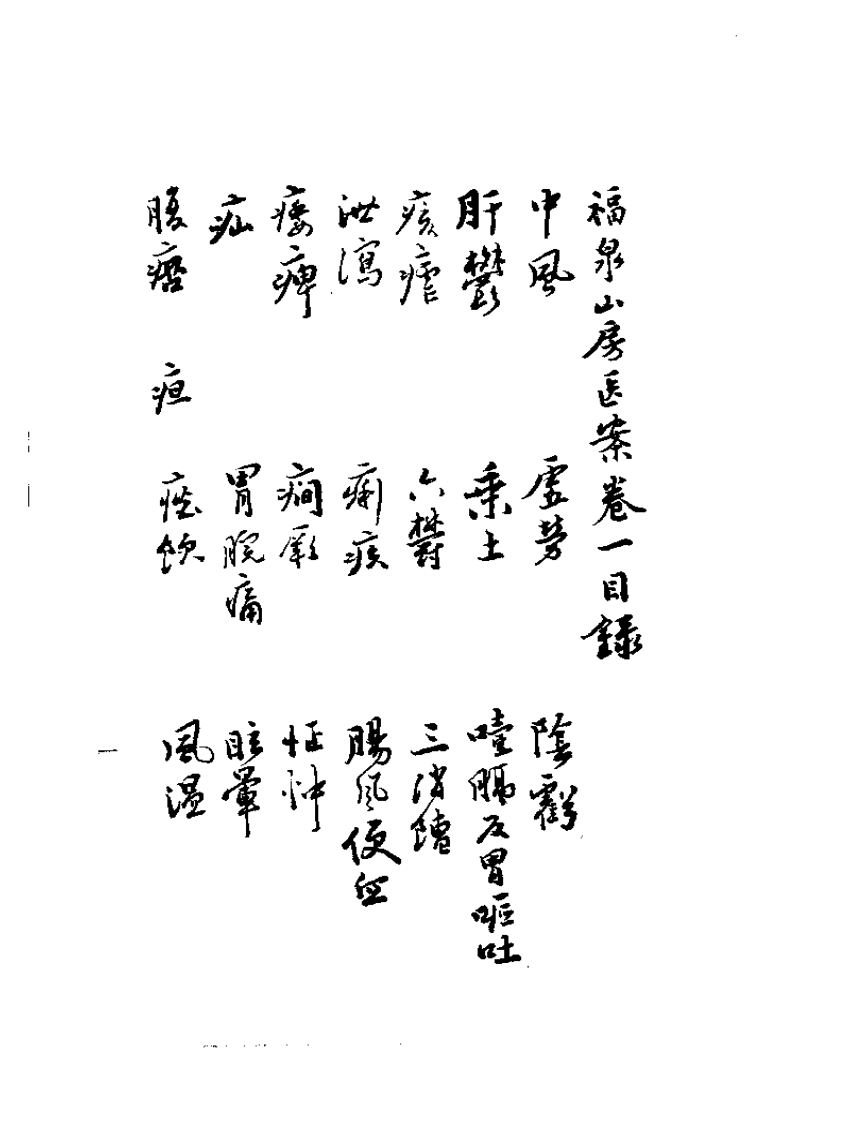 福泉山房医案卷一目錄
中風　虛勞　陰虧
肝鬱　乘土　噎膈反胃嘔吐
痎瘧　六鬱　三消饐
泄瀉　痢疾　腸風便血
痿痺　癎厥　怔忡
疝　胃脘痛　眩暈
腹痞　疸　痰飲　風温
一